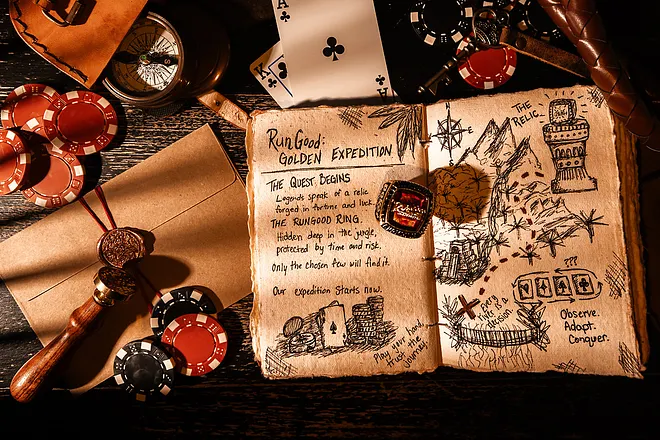 A
K
RunGood:
GOLDEN EXPEDITION
THE QUEST BEGINS
Legends speak of a relic
forged in fortune and luck.
THE RUNGOOD RING.
Hidden deep in the jungle,
protected by time and risk.
Only the chosen few will find it.
Our expedition starts now.
Play your hand,
trust the journey.
THE RELIC
???
every
river's a
decision
Observe.
Adapt.
Conquer.